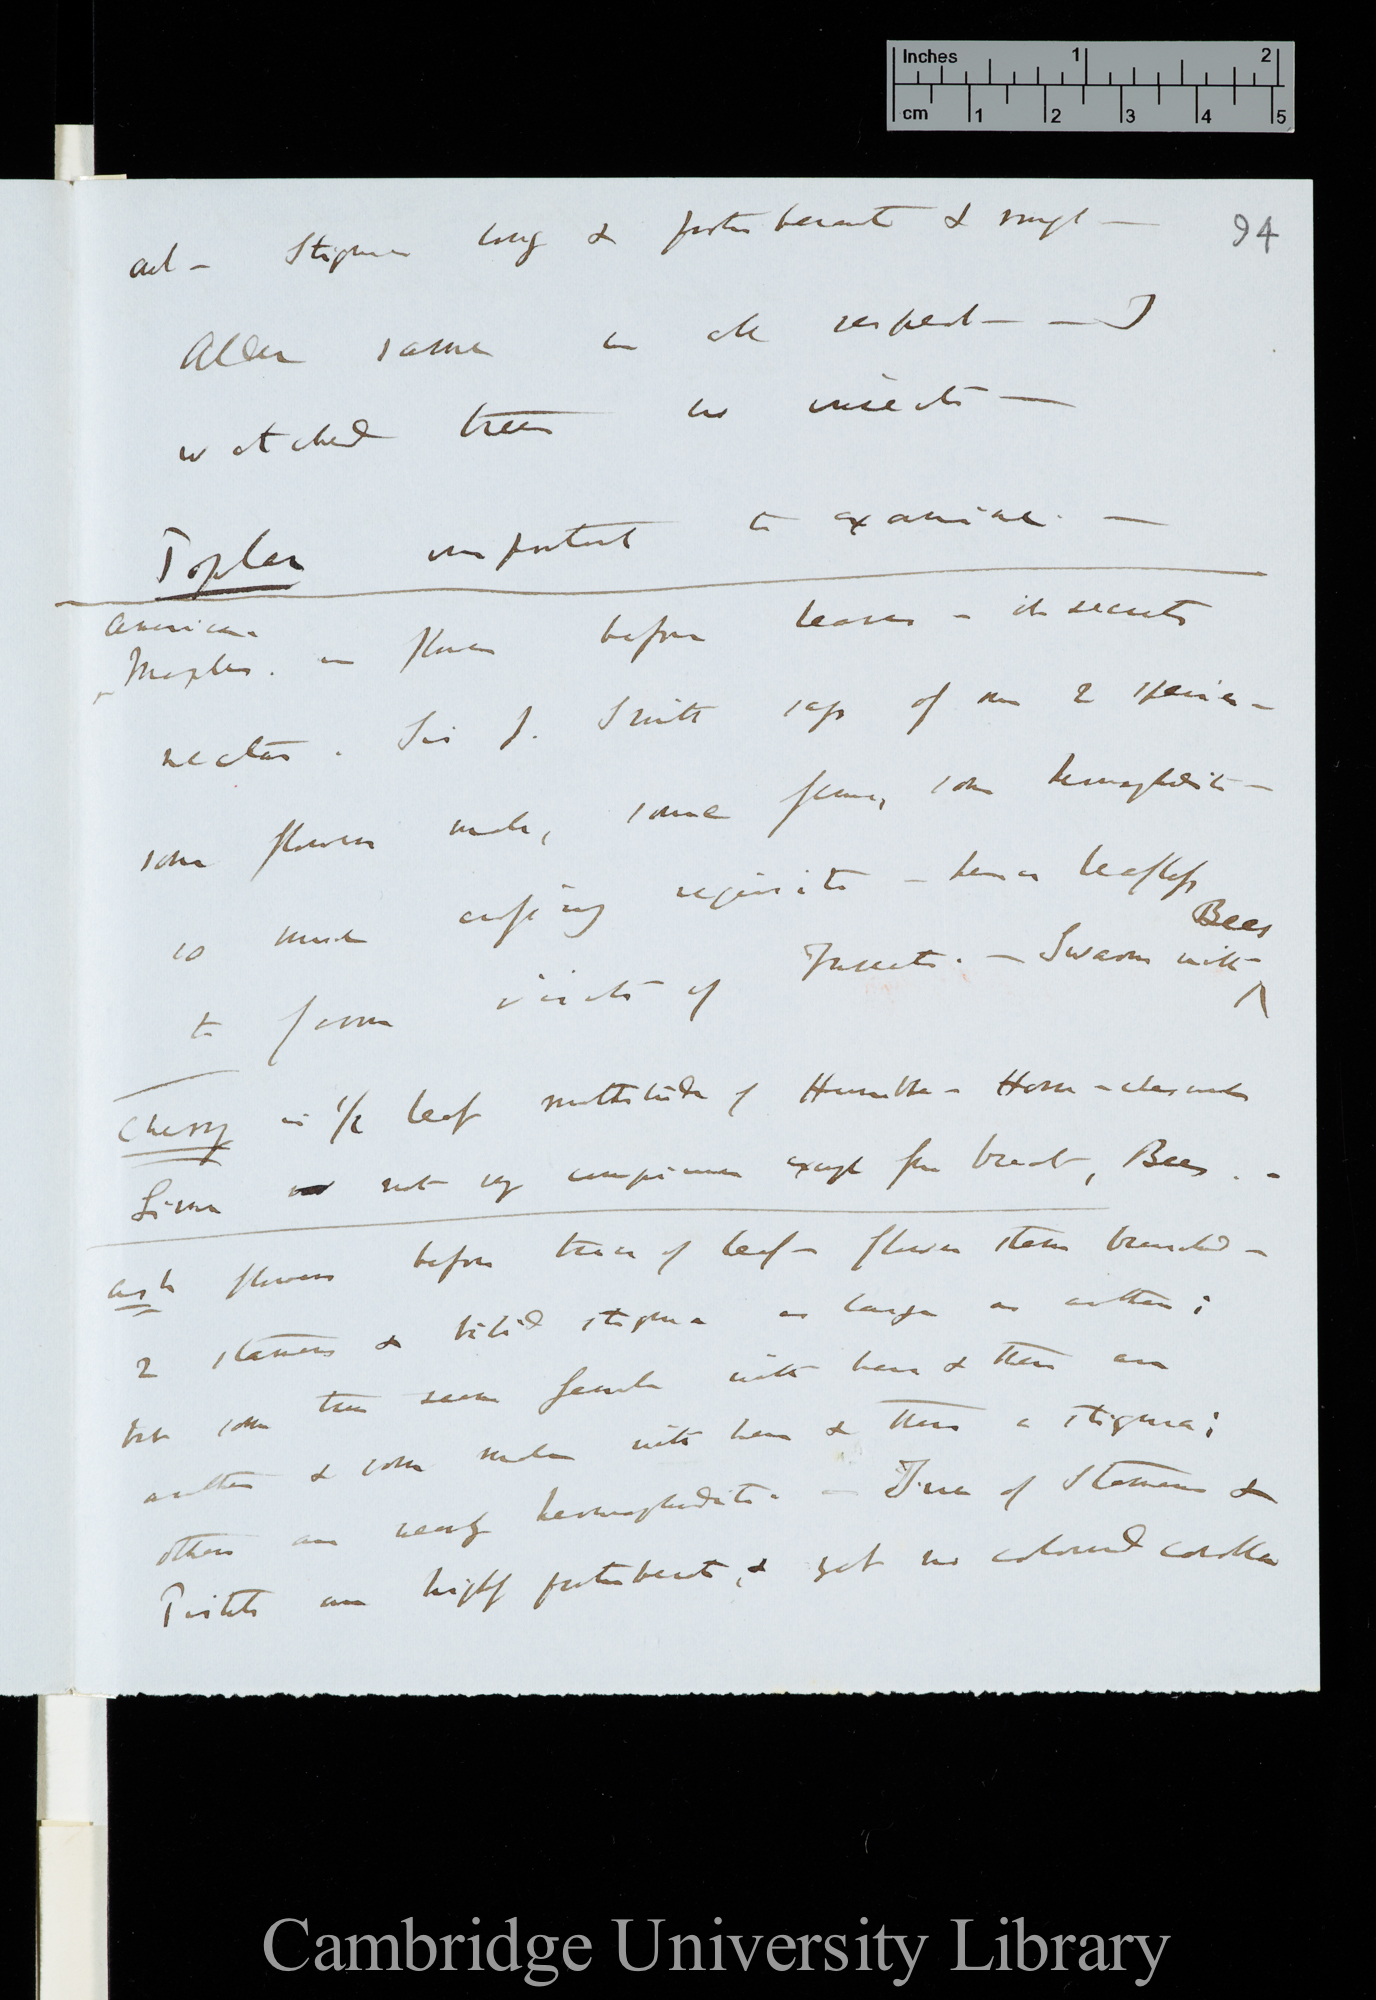 Inches 1 2
cm 1 2 3 4 5
94
act – Stigmas long & protuberant & rough —
Alder same in all respects — — I
watched trees no insects —
Poplar important to examine. —
American
Maples. in flower before leaves – it secretes
nectar. Sir J. Smith says of our 2 species –
some flowers male, some female, some hermaphrodite –
so much crossing requisite – hence leafless
Bees
to favour visits of Insects. – Swarm with
Cherry in 1/2 leaf multitude of Humble –
not by comparison except for breast, Bees. –
Ash flowers before trace of leaf – flower stem branched –
2 stamens & bifid stigma as large as anther;
but some trees seem female with here & there an
anther & some male with here & there a stigma;
others are nearly hermaphrodite. – of Stamens &
Pistils are highly protuberant, & yet no coloured corolla
Cambridge University Library